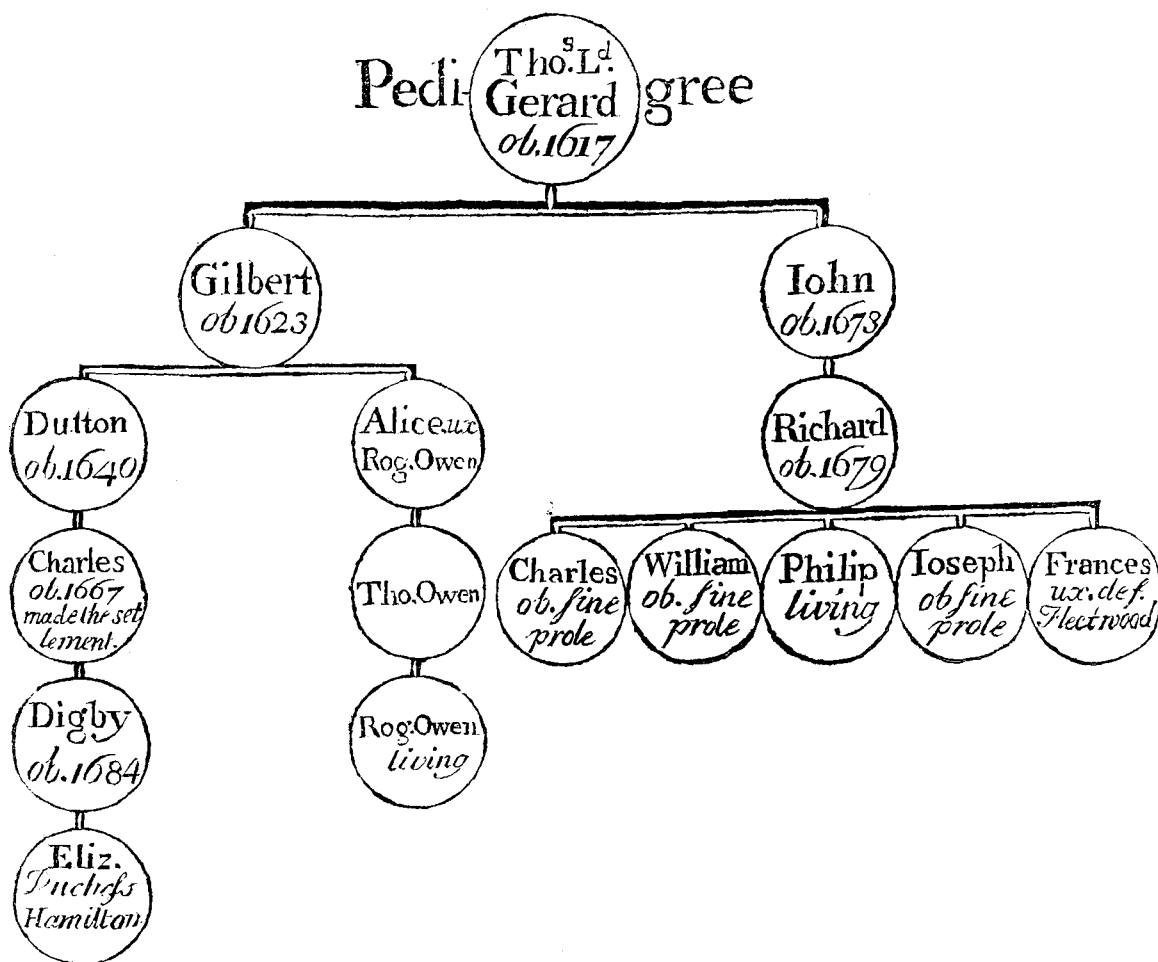 Pedi- gree
Tho.s L.d
Gerard
ob.1617
Gilbert
ob 1623
Iohn
ob.1673
Dutton
ob.1640
Alice ux
Rog.Owen
Richard
ob.1679
Charles
ob.1667
made the set
lement.
Tho.Owen
Charles
ob. ſine
prole
William
ob. ſine
prole
Philip
living
Ioseph
ob ſine
prole
Frances
ux. de f.
Fleetwood
Digby
ob.1684
Rog.Owen
living
Eliz.
Ducheſs
Hamilton